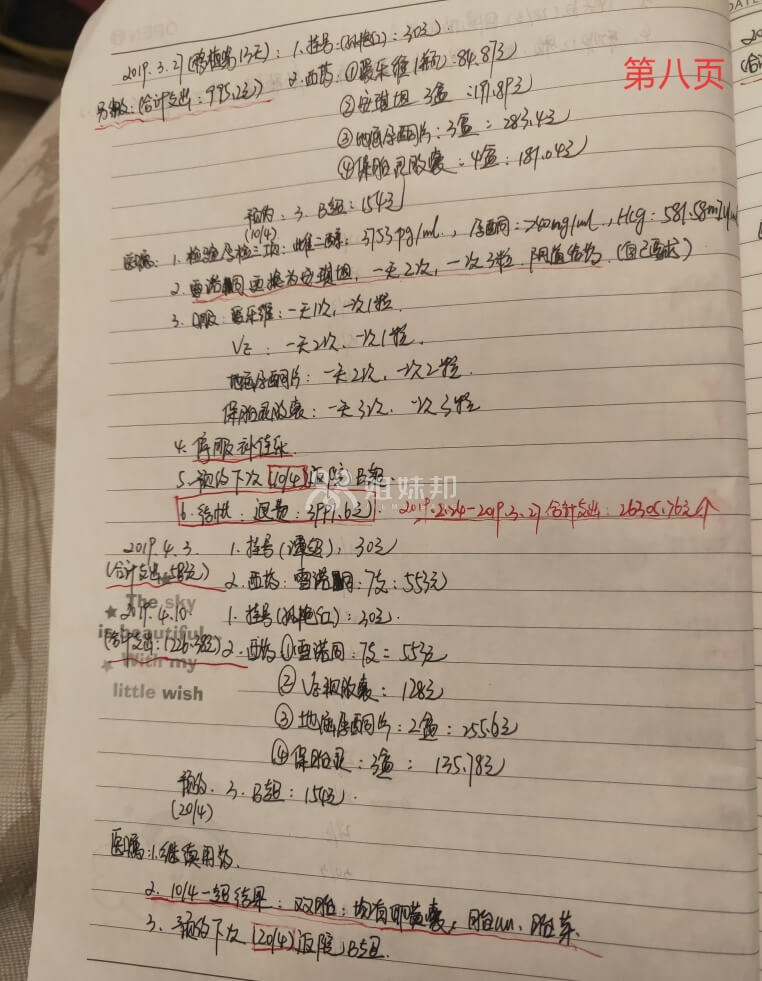 第八页
2019.3.27(移植第13天)：1.挂号：(孙艳红)：30元
(合计支出：995.2元) 2.西药：①爱乐维1瓶：84.87元
②安琪坦 3盒：191.89元
③地屈孕酮片：3盒：283.4元
④保胎灵胶囊：4盒：181.04元
预约：3.B超：154元
(10/4)
医嘱：1.检验孕检三项：雌二醇：3753pg/mL，孕酮：>40mg/mL，Hcg：581.58mIU/
2.雪诺酮更换为安琪坦，一天2次，一次3粒 阴道给药 (自己要求)
3.口服：爱乐维：一天1次，一次1粒
VE：一天2次、一次1粒.
地屈孕酮片：一天2次，一次2粒.
保胎灵胶囊：一天3次、一次3粒
4.停服补佳乐
5.预约下次(10/4)返院B超.
6.结帐：退费：3941.6元 2019.2.24-2019.3.27合计支出：26305.76元
2019.4.3. 1.挂号(谭超)：30元
(合计支出：583元) 2.西药：雪诺酮：7支：553元
2019.4.10. 1.挂号(孙艳红)：30元.
(合计支出：1226.38元) 2.西药①雪诺同：7支=553元
②VE软胶囊：128元
③地屈孕酮片：2盒：255.6元
④保胎灵：3盒：135.78元
预约 3.B超：154元.
(20/4)
医嘱：1.继续用药.
2.10/4一超结果：双胎：均有卵黄囊，
3.预约下次(20/4)返院B超.
The sky
is beautiful
With my
little wish
姐妹邦
OPEN
DATE
2019
(合计